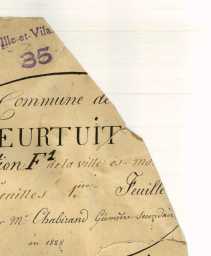 Ille-et-Vila
35
Commune de
EURTUIT
ion F¹ de la ville es-mo
euilles 1ère Feuille
Mr Chabirand Géomètre secondair
en 1828